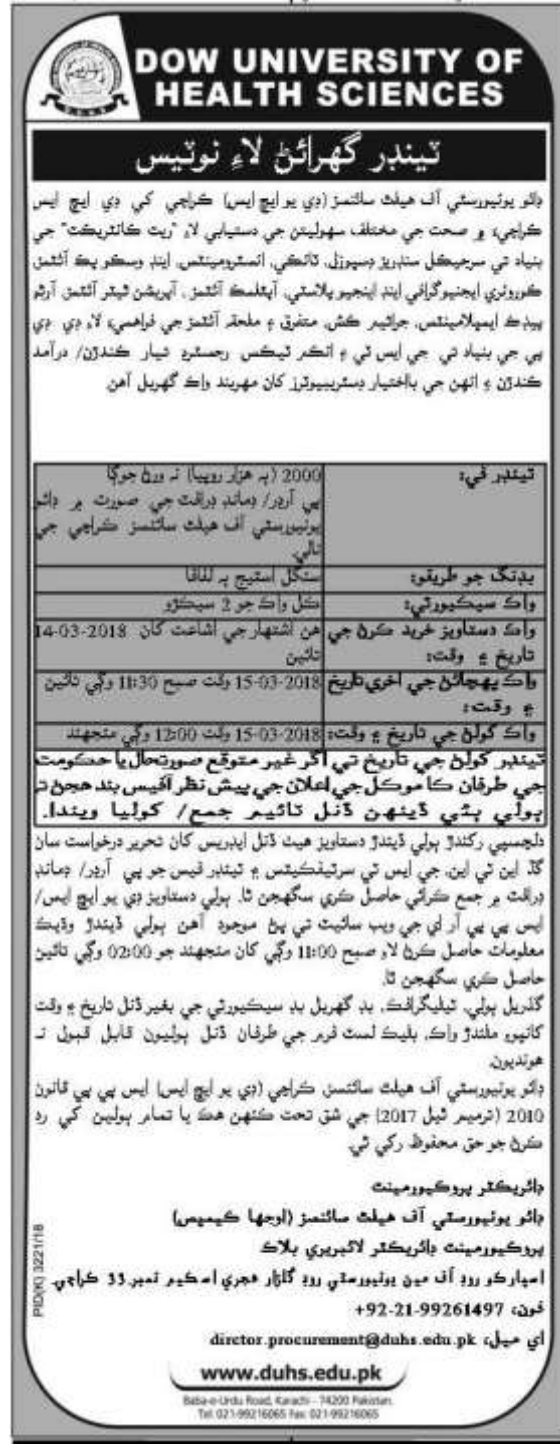 DOW UNIVERSITY OF
HEALTH SCIENCES
ٽينڊر گهرائڻ لاءِ نوٽيس
ڊائو يونيورسٽي آف هيلٿ سائنسز (ڊي يو ايڇ ايس) ڪراچي کي ڊي ايڇ ايس
ڪراچيءَ ۾ صحت جي مختلف سهولتين جي دستيابي لاءِ "ريٽ ڪانٽريڪٽ" جي
بنياد تي سرجيڪل سنڊريز ڊسپوزل، ٽانڪي، انسٽرومينٽس، اينڊ وسڪو پڪ آئٽمز،
ڪورونري اينجيوگرافي اينڊ اينجيو پلاسٽي، آپٿلمڪ آئٽمز، آپريشن ٿيٽر آئٽمز، آرٿو
پيڊڪ ايمپلامينٽس، جراثيم ڪش، متفرق ۽ ملحقہ آئٽمز جي فراهميءَ لاءِ ڊي ڊي
پي جي بنياد تي جي ايس ٽي ۽ انڪم ٽيڪس رجسٽرڊ تيار ڪندڙن/ درآمد
ڪندڙن ۽ انهن جي بااختيار ڊسٽريبيوٽرز کان مهربند واڪ گهربل آهن
ٽينڊر في: 2000 (ٻہ هزار روپيا) نہ ورڻ جوڳا
پي آرڊر/ ڊمانڊ ڊرافٽ جي صورت ۾ ڊائو
يونيورسٽي آف هيلٿ سائنسز ڪراچي جي
نالي.
بڊنگ جو طريقو: سنگل اسٽيج ٻہ لفافا
واڪ سيڪيورٽي: ڪل واڪ جو 2 سيڪڙو
واڪ دستاويز خريد ڪرڻ جي هن اشتهار جي اشاعت کان 14-03-2018
تاريخ ۽ وقت: تائين
واڪ پهچائڻ جي آخري تاريخ 15-03-2018 وقت صبح 11:30 وڳي تائين
۽ وقت:
واڪ کولڻ جي تاريخ ۽ وقت: 15-03-2018 وقت 12:00 وڳي منجهند
ٽينڊر کولڻ جي تاريخ تي اگر غير متوقع صورتحال يا حڪومت
جي طرفان ڪا موڪل جي اعلان جي پيش نظر آفيس بند هجڻ تہ
ٻولي ٻئي ڏينهن ڏنل ٽائيم جمع/ کوليا ويندا.
دلچسپي رکندڙ ٻولي ڏيندڙ دستاويز هيٺ ڏنل ايڊريس کان تحرير درخواست سان
گڏ اين ٽي اين، جي ايس ٽي سرٽيفڪيٽس ۽ ٽينڊر فيس جو پي آرڊر/ ڊمانڊ
ڊرافٽ ۾ جمع ڪرائي حاصل ڪري سگهجن ٿا. ٻولي دستاويز ڊي يو ايڇ ايس/
ايس پي پي آر اي جي ويب سائيٽ تي پڻ موجود آهن ٻولي ڏيندڙ وڌيڪ
معلومات حاصل ڪرڻ لاءِ صبح 11:00 وڳي کان منجهند جو 02:00 وڳي تائين
حاصل ڪري سگهجن ٿا.
گڏيل ٻولي، ٽيليگرافڪ، بڊ گهربل بڊ سيڪيورٽي جي بغير ڏنل تاريخ ۽ وقت
کانپوءِ ملندڙ واڪ، بليڪ لسٽ فرم جي طرفان ڏنل ٻوليون قابل قبول نہ
هونديون.
ڊائو يونيورسٽي آف هيلٿ سائنسز ڪراچي (ڊي يو ايڇ ايس) ايس پي پي قانون
2010 (ترميم ٿيل 2017) جي شق تحت ڪنهن هڪ يا تمام ٻولين کي رد
ڪرڻ جو حق محفوظ رکي ٿي.
ڊائريڪٽر پروڪيورمينٽ
ڊائو يونيورسٽي آف هيلٿ سائنسز (اوجها ڪيمپس)
پروڪيورمينٽ ڊائريڪٽر لائبريري بلاڪ
اسپارڪو روڊ آف مين يونيورسٽي روڊ گلزار هجري اسڪيم نمبر 33 ڪراچي.
فون: +92-21-99261497
اي ميل: dirctor.procurement@duhs.edu.pk
www.duhs.edu.pk
Baba-e-Urdu Road, Karachi - 74200 Pakistan.
Tel: 021-99216065 Fax: 021-99216065
PID(K) 3221/18